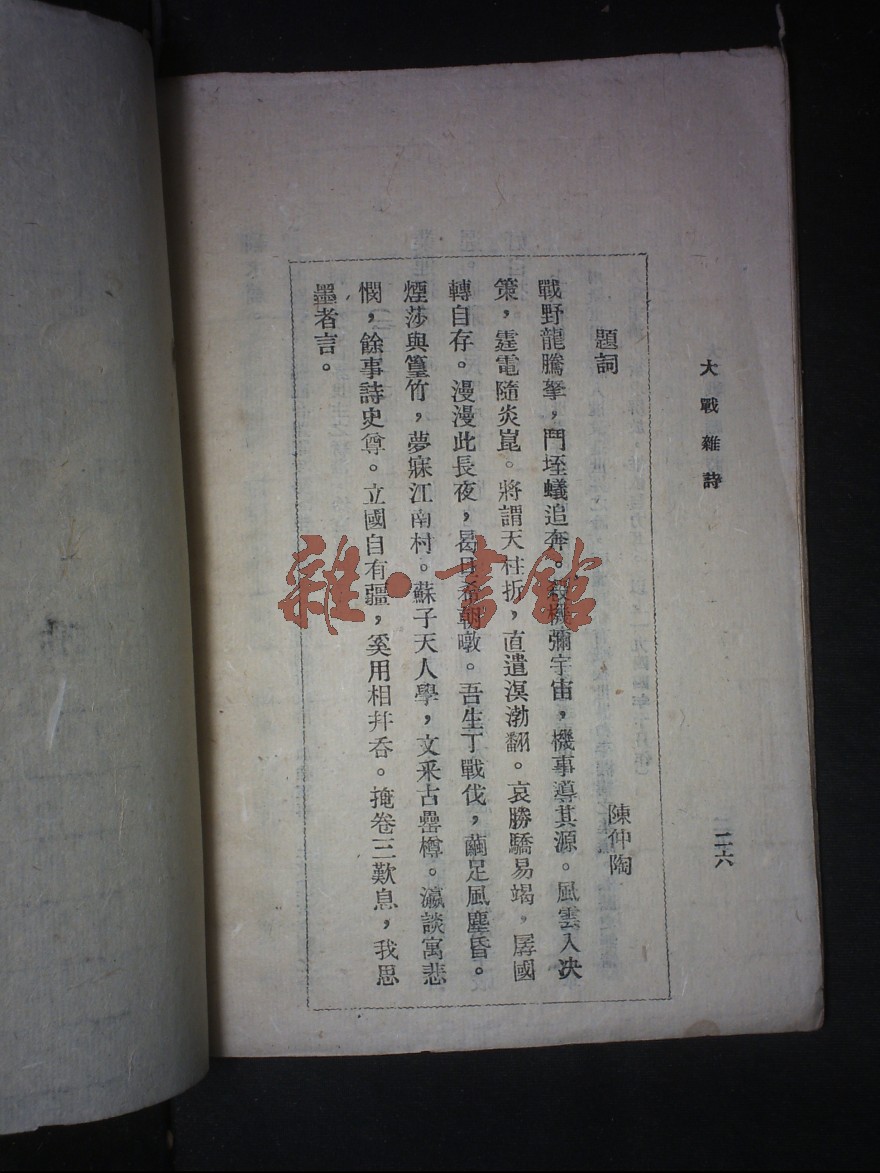 大戰雜詩
二六
題詞
陳仲陶
戰野龍騰拏，鬥垤蟻追奔。殺機彌宇宙，機事導其源。風雲入决
策，霆電隨炎崑。將謂天柱折，直遣溟渤翻。哀勝驕易竭，孱國
轉自存。漫漫此長夜，曷旦希朝暾。吾生丁戰伐，繭足風塵昏。
煙莎與篁竹，夢寐江南村。蘇子天人學，文采古罍樽。瀛談寓悲
憫，餘事詩史尊。立國自有疆，奚用相幷吞。掩卷三歎息，我思
墨者言。
雜·書館